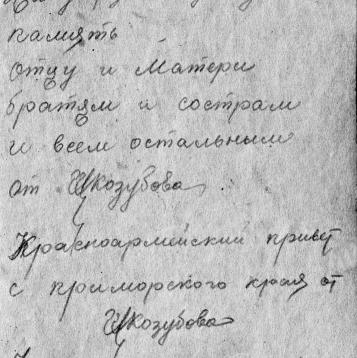 память
отцу и Матери
братям и сострам
и всем остальным
от Козубова
Красноармейский привет
с приморского края от
Козубова